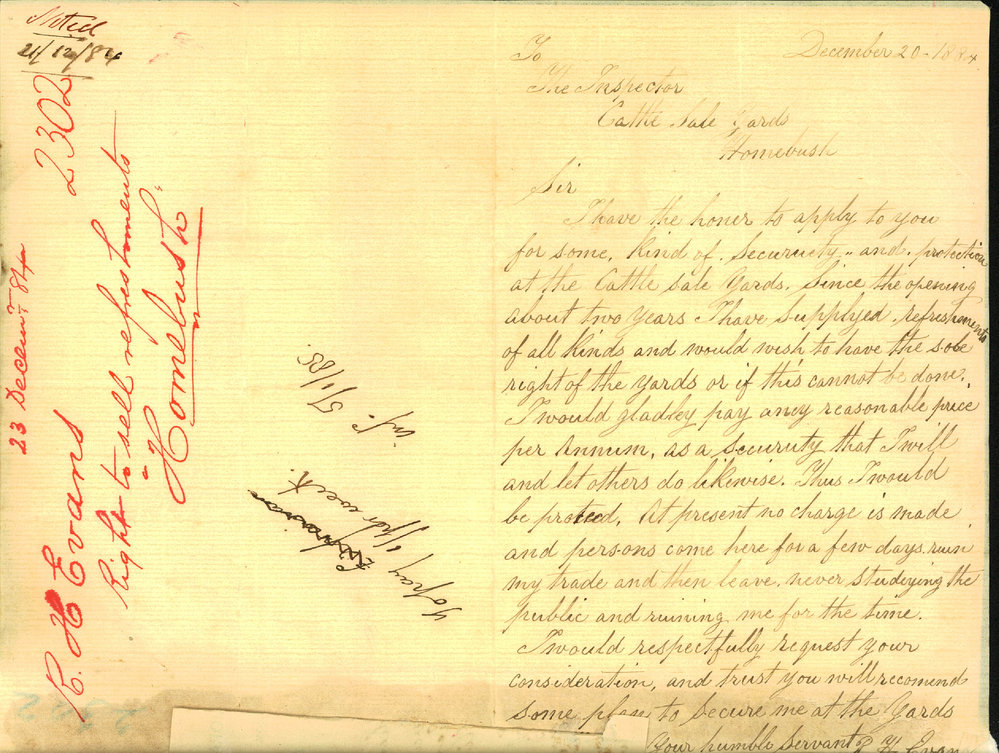 Noted
24/12/84
2302
23 Decemr 84
R. H Evans
Right to sell refreshments
"Homebush"
To pay 1/1 per week.
5/1/85.
December 20-1884
To
The Inspector
Cattle Sale Yards
Homebush
Sir
I have the honer to apply to you
for some, kind of, Securucty,, and, protection
at the Cattle Sale Yards. Since the opening
about two years I have supplyed refreshments
of all kinds and would wish to have the sole
right of the yards or if this cannot be done,
I would gladley pay aney reasonable price
per Annum, as a securuty that I will
and let others do likewise. Thus I would
be proteced, At present no charge is made
and persons come here for a few days, ruin
my trade and then leave, never studeying the
public and ruining me for the time.
I would respectfully request your
consideration, and trust you will recomend
some plan to secure me at the Yards
Your humble Servant R H Evans